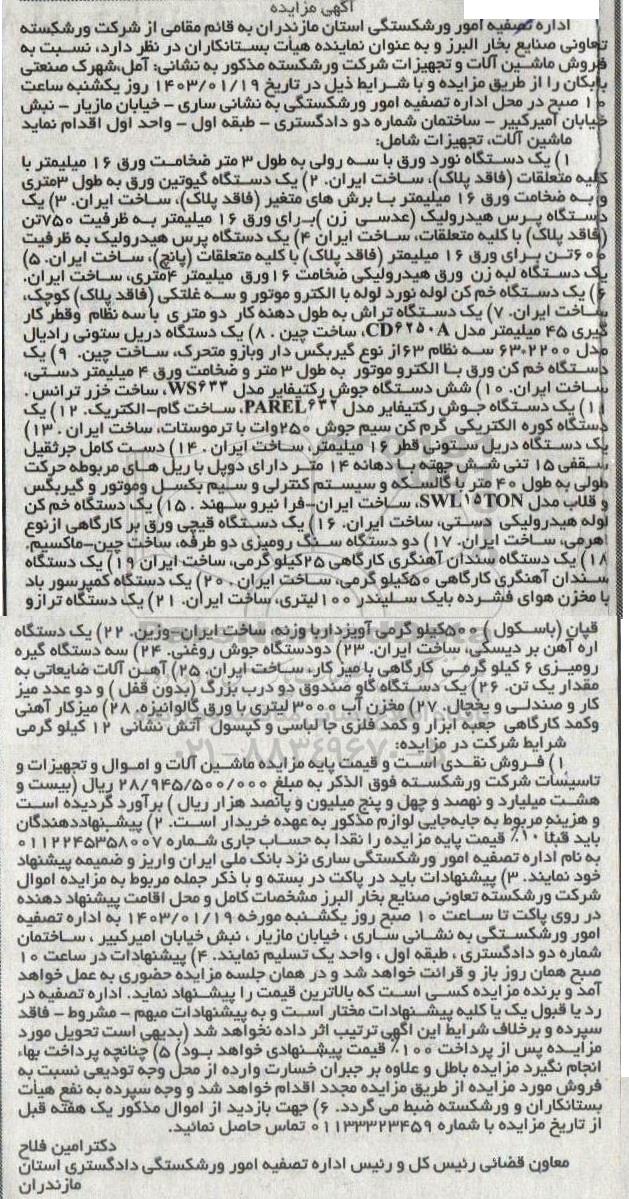 آگهی مزایده
اداره تصفیه امور ورشکستگی استان مازندران به قائم مقامی از شرکت ورشکسته
تعاونی صنایع بخار البرز و به عنوان نماینده هیأت بستانکاران در نظر دارد، نسبت به
فروش ماشین آلات و تجهیزات شرکت ورشکسته مذکور به نشانی: آمل،شهرک صنعتی
بابکان را از طریق مزایده و با شرایط ذیل در تاریخ ۱۴۰۳/۰۱/۱۹ روز یکشنبه ساعت
۱۰ صبح در محل اداره تصفیه امور ورشکستگی به نشانی ساری - خیابان مازیار - نبش
خیابان امیرکبیر - ساختمان شماره دو دادگستری - طبقه اول - واحد اول اقدام نماید
ماشین آلات، تجهیزات شامل:
۱) یک دستگاه نورد ورق با سه رولی به طول ۳ متر ضخامت ورق ۱۶ میلیمتر با
کلیه متعلقات (فاقد پلاک)، ساخت ایران. ۲) یک دستگاه گیوتین ورق به طول ۳متری
و به ضخامت ورق ۱۶ میلیمتر با برش های متغیر (فاقد پلاک)، ساخت ایران. ۳) یک
دستگاه پرس هیدرولیک (عدسی زن )برای ورق ۱۶ میلیمتر به ظرفیت ۷۵۰تن
(فاقد پلاک) با کلیه متعلقات، ساخت ایران ۴) یک دستگاه پرس هیدرولیک به ظرفیت
۶۰۰تن برای ورق ۱۶ میلیمتر (فاقد پلاک) با کلیه متعلقات (پانچ)، ساخت ایران. ۵)
یک دستگاه لبه زن ورق هیدرولیکی ضخامت ۱۶ورق میلیمتر ۴متری، ساخت ایران.
۶) یک دستگاه خم کن لوله نورد لوله با الکترو موتور و سه غلتکی (فاقد پلاک) کوچک،
ساخت ایران. ۷) یک دستگاه تراش به طول دهنه کار دو متری با سه نظام وقطر کار
گیری ۴۵ میلیمتر مدل CD۶۲۵۰A، ساخت چین . ۸) یک دستگاه دریل ستونی رادیال
مدل ۶۳۰۲۲۰۰ سه نظام ۶۳از نوع گیربگس دار وبازو متحرک، ساخت چین. ۹) یک
دستگاه خم کن ورق با الکترو موتور به طول ۳ متر و ضخامت ورق ۴ میلیمتر دستی،
ساخت ایران. ۱۰) شش دستگاه جوش رکتیفایر مدل WS۶۳۳، ساخت خزر ترانس .
۱۱) یک دستگاه جوش رکتیفایر مدل PAREL۶۳۲، ساخت گام-الکتریک. ۱۲) یک
دستگاه کوره الکتریکی گرم کن سیم جوش ۲۵۰وات با ترموستات، ساخت ایران . ۱۳)
یک دستگاه دریل ستونی قطر ۱۶ میلیمتر، ساخت ایران . ۱۴) دست کامل جرثقیل
سقفی ۱۵ تنی شش جهته با دهانه ۱۴ متر دارای دوپل با ریل های مربوطه حرکت
طولی به طول ۴۰ متر با گالسکه و سیستم کنترلی و سیم بکسل وموتور و گیربگس
و قلاب مدل SWL۱۵TON، ساخت ایران-فرا نیرو سهند . ۱۵) یک دستگاه خم کن
لوله هیدرولیکی دستی، ساخت ایران. ۱۶) یک دستگاه قیچی ورق بر کارگاهی ازنوع
اهرمی، ساخت ایران. ۱۷) دو دستگاه سنگ رومیزی دو طرفه، ساخت چین-ماکسیم.
۱۸) یک دستگاه سندان آهنگری کارگاهی ۲۵کیلو گرمی، ساخت ایران ۱۹) یک دستگاه
سندان آهنگری کارگاهی ۵۰کیلو گرمی، ساخت ایران . ۲۰) یک دستگاه کمپرسور باد
با مخزن هوای فشرده بایک سلیندر ۱۰۰لیتری، ساخت ایران. ۲۱) یک دستگاه ترازو
قپان (باسکول ) ۵۰۰کیلو گرمی آویزدار با وزنه، ساخت ایران-وزین. ۲۲) یک دستگاه
اره آهن بر دیسکی، ساخت ایران. ۲۳) دودستگاه جوش روغنی. ۲۴) سه دستگاه گیره
رومیزی ۶ کیلو گرمی کارگاهی با میز کار، ساخت ایران. ۲۵) آهن آلات ضایعاتی به
مقدار یک تن. ۲۶) یک دستگاه گاو صندوق دو درب بزرگ (بدون قفل ) و دو عدد میز
کار و صندلی و یخچال. ۲۷) مخزن آب ۳۰۰۰ لیتری با ورق گالوانیزه. ۲۸) میزکار آهنی
وکمد کارگاهی جعبه ابزار و کمد فلزی جا لباسی و کپسول آتش نشانی ۱۲ کیلو گرمی
شرایط شرکت در مزایده:
۱) فروش نقدی است و قیمت پایه مزایده ماشین آلات و اموال و تجهیزات و
تاسیسات شرکت ورشکسته فوق الذکر به مبلغ ۲۸/۹۴۵/۵۰۰/۰۰۰ ریال (بیست و
هشت میلیارد و نهصد و چهل و پنج میلیون و پانصد هزار ریال ) برآورد گردیده است
و هزینه مربوط به جابه‌جایی لوازم مذکور به عهده خریدار است. ۲) پیشنهاددهندگان
باید قبلاً ۱۰٪ قیمت پایه مزایده را نقداً به حساب جاری شماره ۰۱۱۲۲۴۵۳۵۸۰۰۷
به نام اداره تصفیه امور ورشکستگی ساری نزد بانک ملی ایران واریز و ضمیمه پیشنهاد
خود نمایند. ۳) پیشنهادات باید در پاکت در بسته و با ذکر جمله مربوط به مزایده اموال
شرکت ورشکسته تعاونی صنایع بخار البرز مشخصات کامل و محل اقامت پیشنهاد دهنده
در روی پاکت تا ساعت ۱۰ صبح روز یکشنبه مورخه ۱۴۰۳/۰۱/۱۹ به اداره تصفیه
امور ورشکستگی به نشانی ساری ، خیابان مازیار ، نبش خیابان امیرکبیر ، ساختمان
شماره دو دادگستری ، طبقه اول ، واحد یک تسلیم نمایند. ۴) پیشنهادات در ساعت ۱۰
صبح همان روز باز و قرائت خواهد شد و در همان جلسه مزایده حضوری به عمل خواهد
آمد و برنده مزایده کسی است که بالاترین قیمت را پیشنهاد نماید. اداره تصفیه در
رد یا قبول یک یا کلیه پیشنهادات مختار است و به پیشنهادات مبهم - مشروط - فاقد
سپرده و برخلاف شرایط این آگهی ترتیب اثر داده نخواهد شد (بدیهی است تحویل مورد
مزایده پس از پرداخت ۱۰۰٪ قیمت پیشنهادی خواهد بود) ۵) چنانچه پرداخت بهاء
انجام نگیرد مزایده باطل و علاوه بر جبران خسارت وارده از محل وجه تودیعی نسبت به
فروش مورد مزایده از طریق مزایده مجدد اقدام خواهد شد و وجه سپرده به نفع هیأت
بستانکاران و ورشکسته ضبط می گردد. ۶) جهت بازدید از اموال مذکور یک هفته قبل
از تاریخ مزایده با شماره ۰۱۱۳۳۳۲۳۴۵۹ تماس حاصل نمائید.
دکترامین فلاح
معاون قضائی رئیس کل و رئیس اداره تصفیه امور ورشکستگی دادگستری استان
مازندران